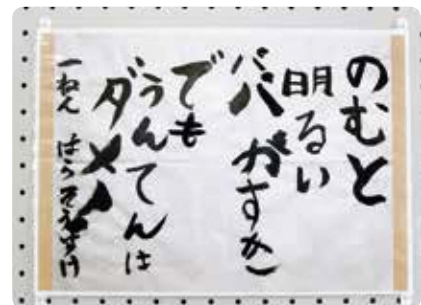 のむと
明るい
パパがすき
でも
うんてんは
ダメ！
一ねん はらそうすけ